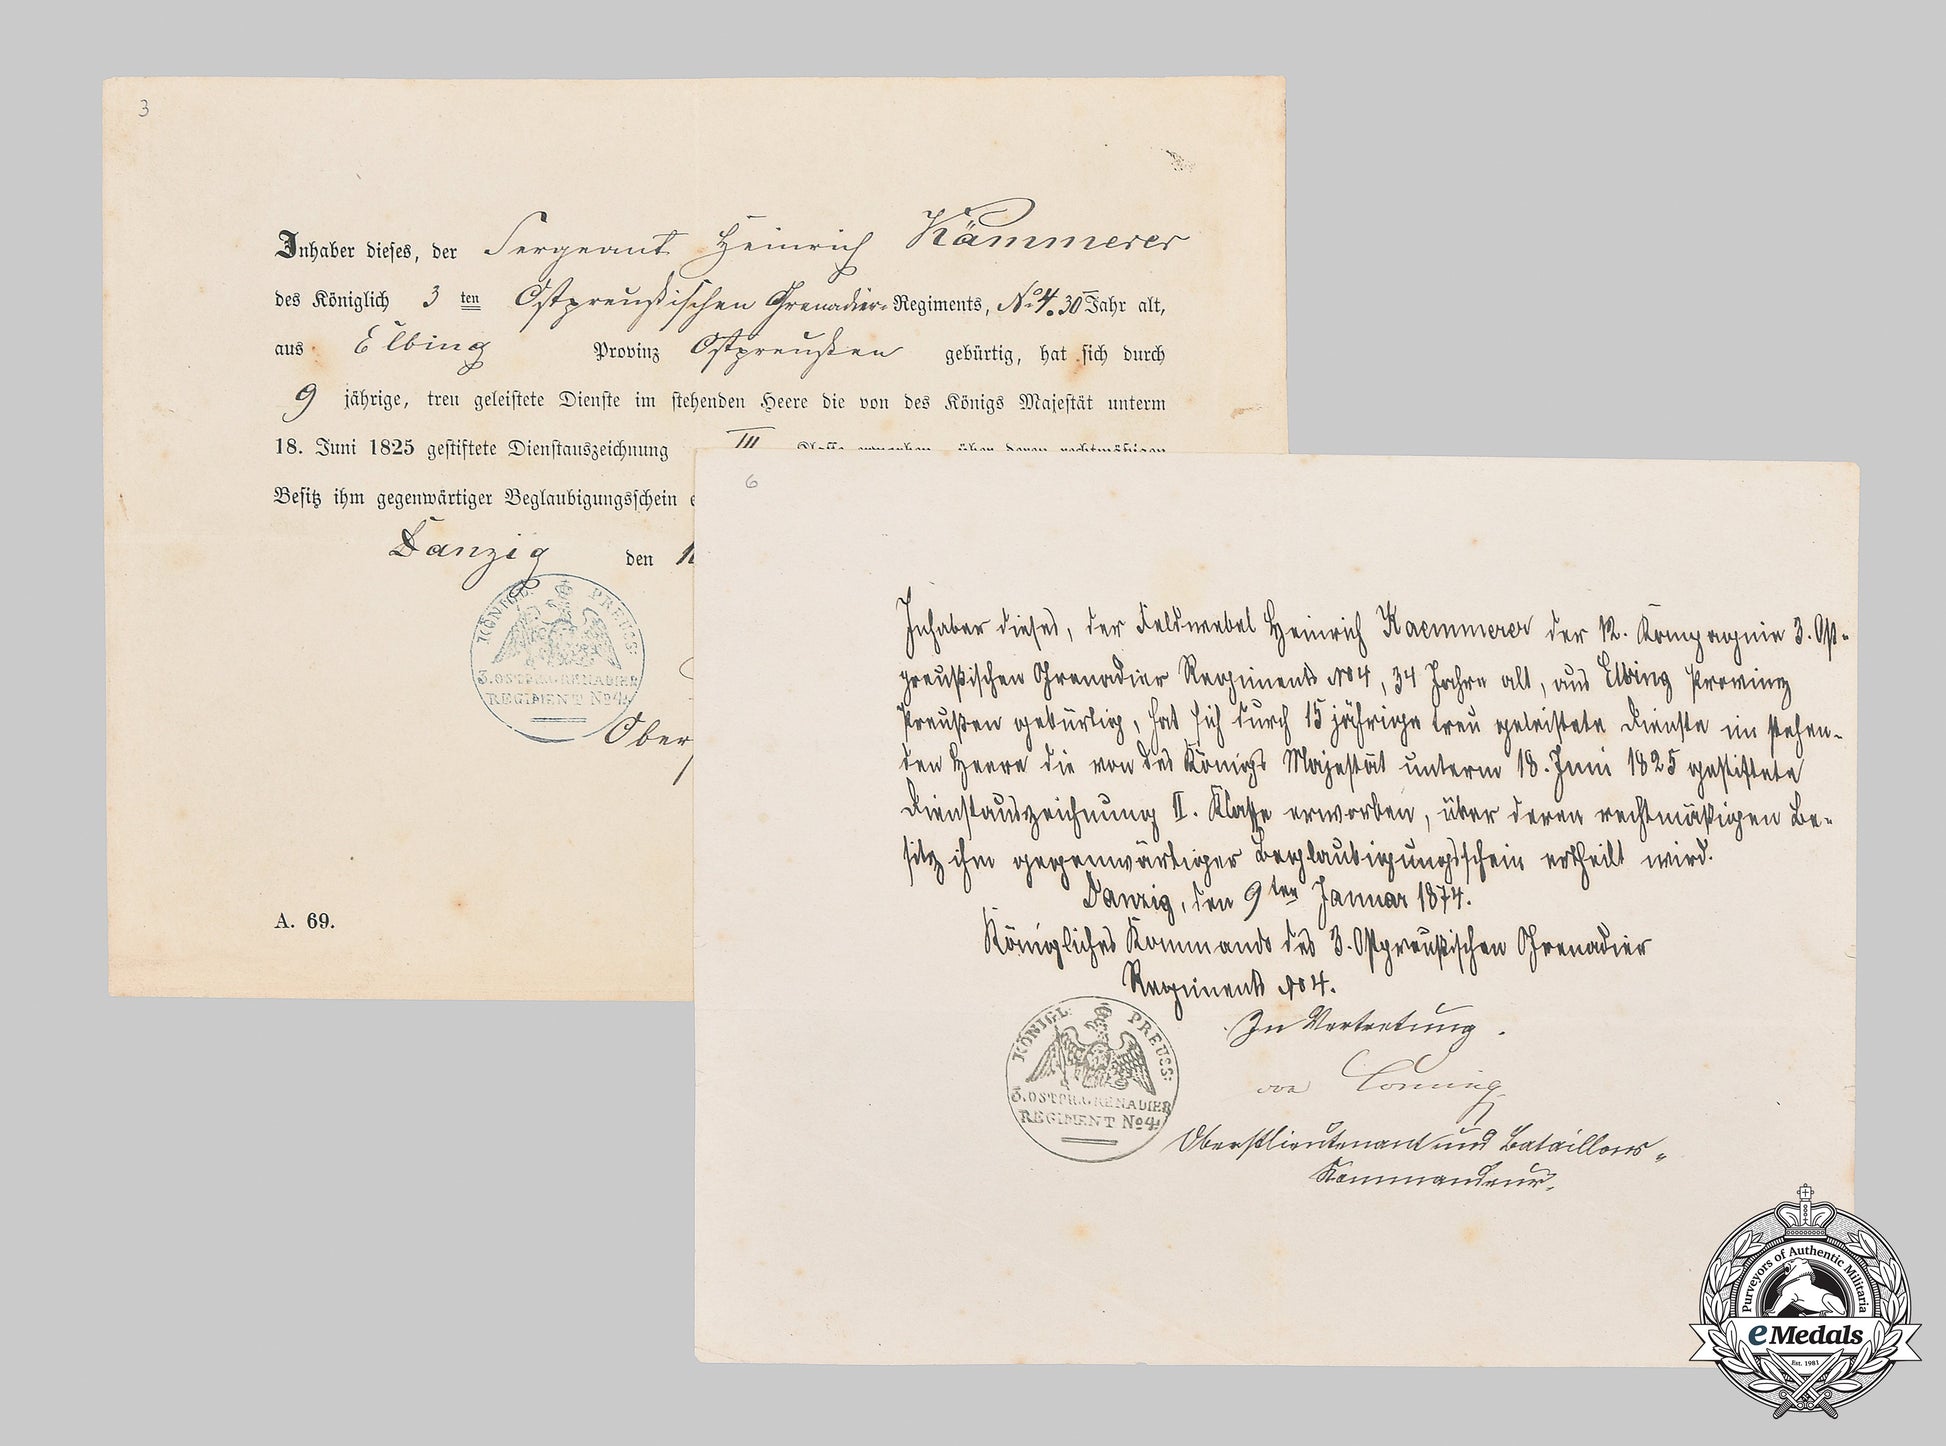 3
Inhaber dieses, der Sergeant Heinrich Kämmerer
des Königlich 3 ten Ostpreußischen Grenadier-Regiments, No 4. 30 Jahr alt,
aus Elbing Provinz Ostpreußen gebürtig, hat sich durch
9 jährige, treu geleistete Dienste im stehenden Heere die von des Königs Majestät unterm
18. Juni 1825 gestiftete Dienstauszeichnung III Classe erworben, über deren rechtmäßigen
Besitz ihm gegenwärtiger Beglaubigungsschein
Danzig den
KÖNIGL. PREUSS:
3. OSTPR. GRENADIER
REGIMENT No 4.
Ober
A. 69.
6
Inhaber dieses, der Feldwebel Heinrich Kaemmerer der 12. Kompagnie 3. Ost-
preußischen Grenadier Regiments No 4, 34 Jahre alt, aus Elbing Provinz
Preußen gebürtig, hat sich durch 15 jährige treu geleistete Dienste im stehen-
den Heere die von des Königs Majestät unterm 18. Juni 1825 gestiftete
Dienstauszeichnung II. Klasse erworben, über deren rechtmäßigen Be-
sitz ihm gegenwärtiger Beglaubigungsschein ertheilt wird.
Danzig, den 9ten Januar 1874.
Königliches Kommando des 3. Ostpreußischen Grenadier
Regiments No 4.
In Vertretung.
KÖNIGL. PREUSS:
3. OSTPR. GRENADIER
REGIMENT No 4.
Oberstlieutenant und Bataillons-
Kommandeur.
Purveyors of Authentic Militaria
eMedals
Est. 1983